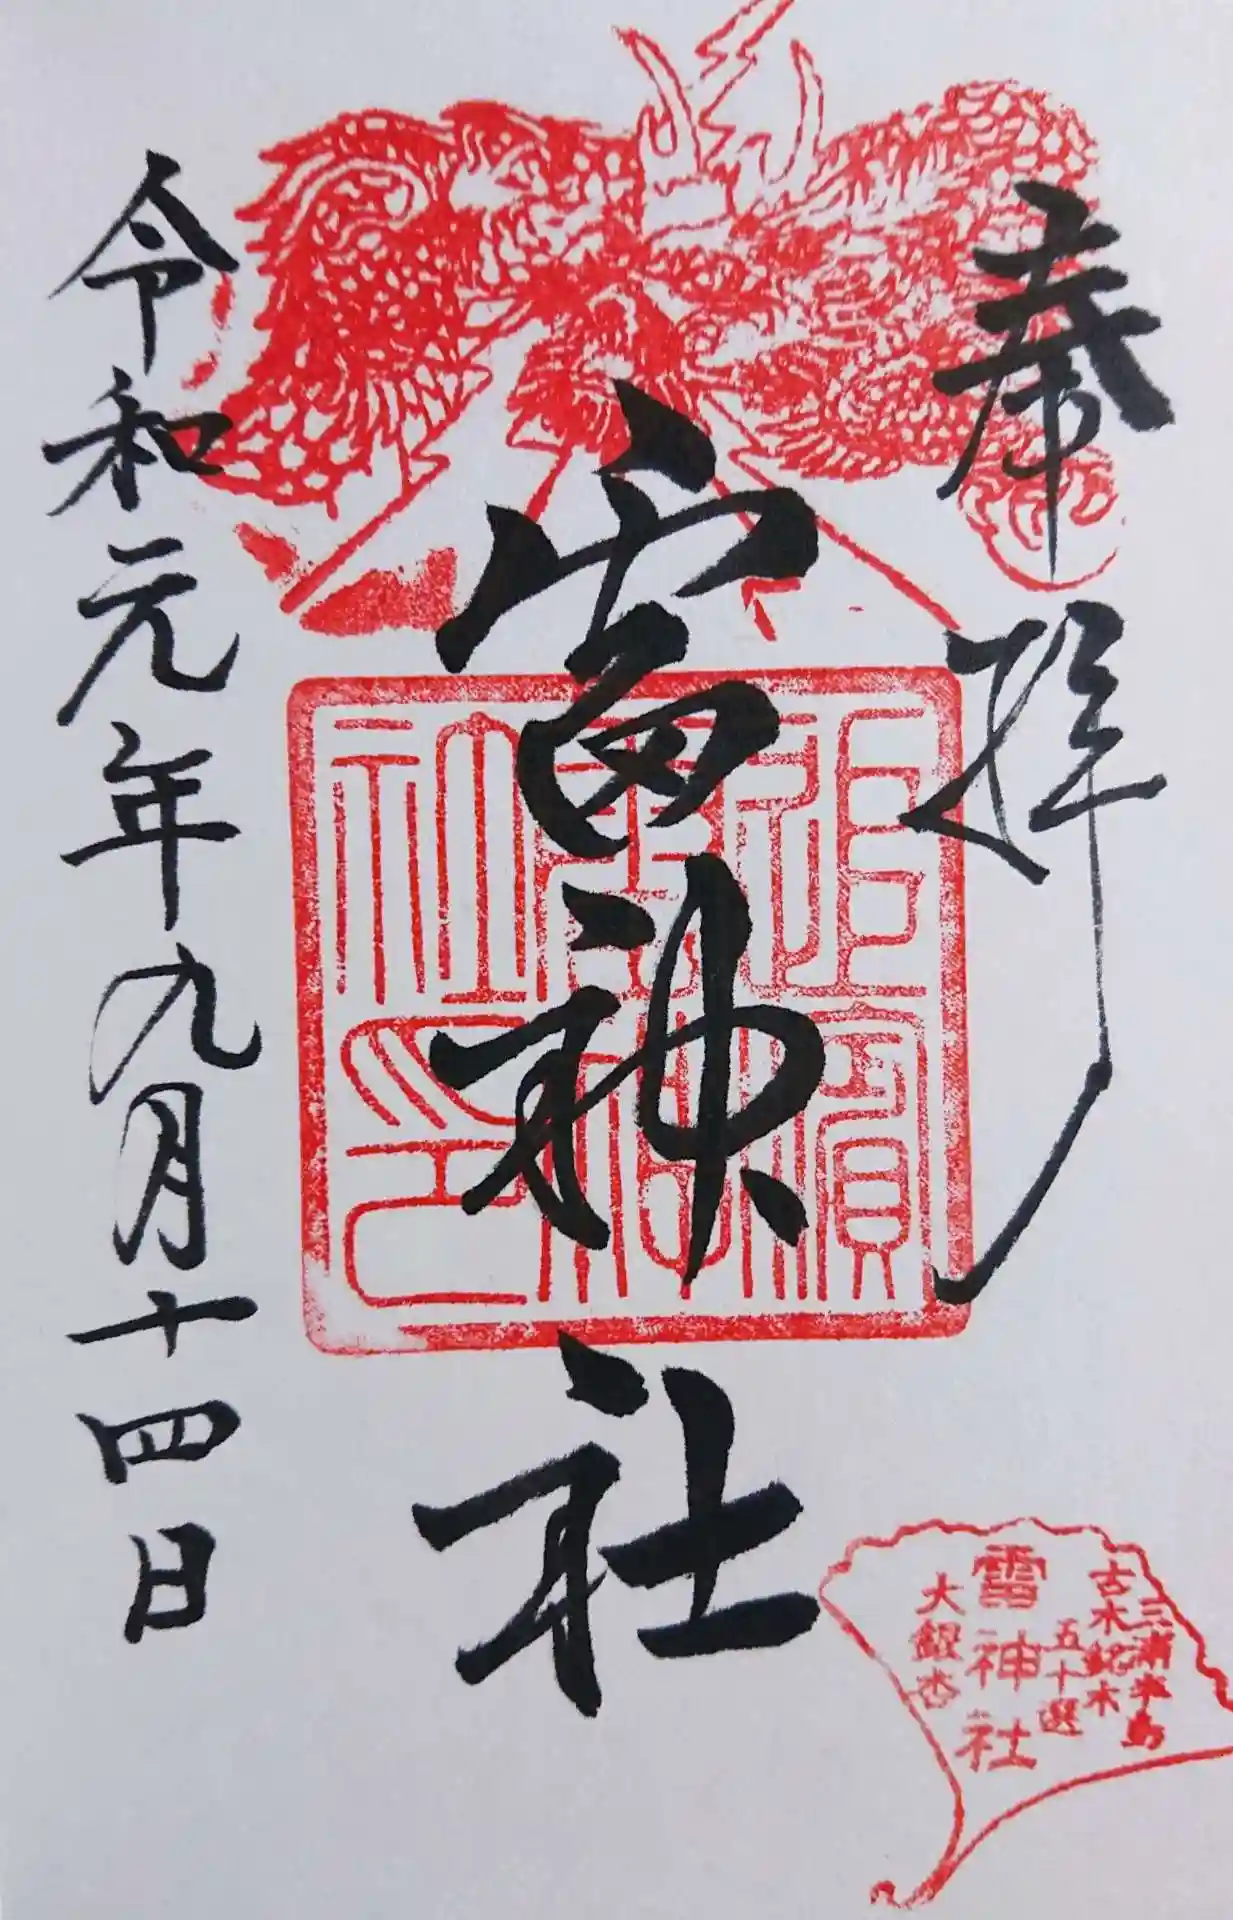 奉拝
雷神社
令和元年九月十四日
追濱
雷神
社印
三浦半島
古木銘木
五十選
雷神社
大銀杏